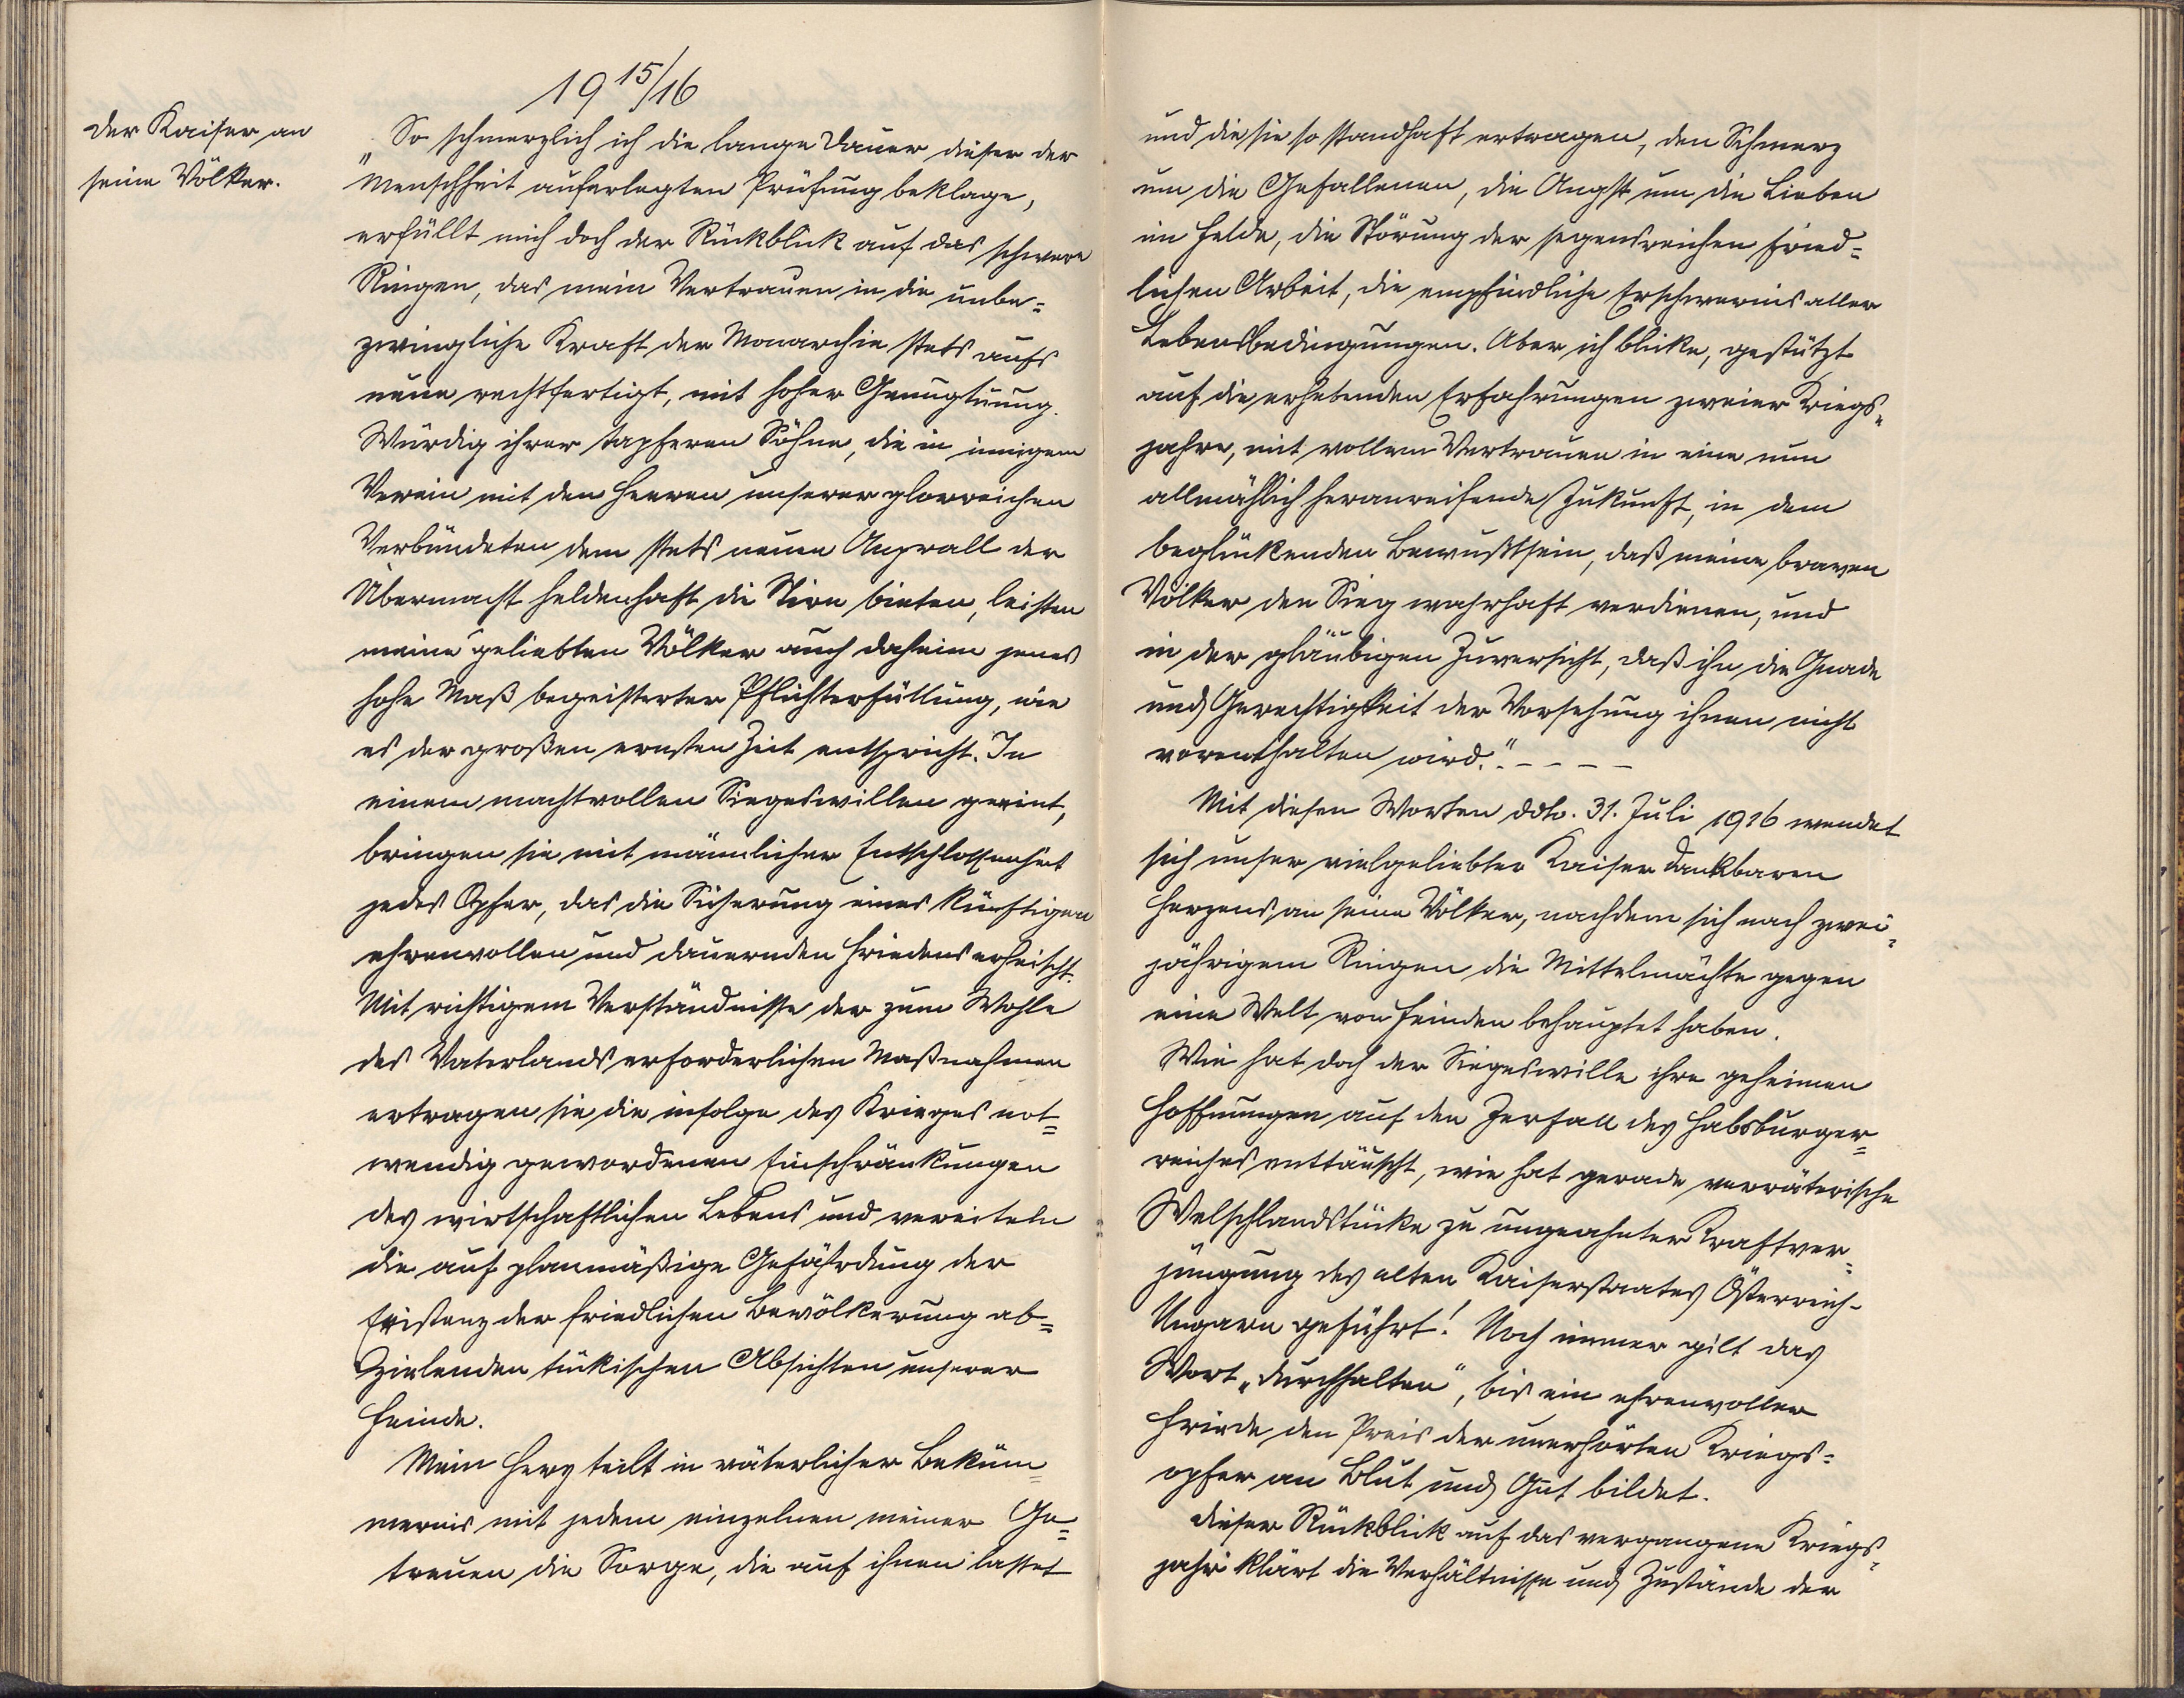 19 15/16
Der Kaiser an
seine Völker.
„So schmerzlich ich die lange Dauer dieser der
Menschheit auferlegten Prüfung beklage,
erfüllt mich doch der Rückblick auf das schwere
Ringen, das mein Vertrauen in die unbe=
zwingliche Kraft der Monarchie stets aufs
neue rechtfertigt, mit hoher Genugtuung.
Würdig ihrer tapferen Söhne, die in innigem
Verein mit den Heeren unserer glorreichen
Verbündeten dem stets neuen Anprall der
Übermacht heldenhaft die Stirn bieten, leisten
meine geliebten Völker auch daheim jenes
hohe Maß begeisterter Pflichterfüllung, wie
es der großen ernsten Zeit entspricht. In
einem machtvollen Siegeswillen geeint,
bringen sie mit männlicher Entschlossenheit
jedes Opfer, das die Sicherung eines künftigen
ehrenvollen und dauernden Friedens erheischt.
Mit richtigem Verständnisse der zum Wohle
des Vaterlands erforderlichen Maßnahmen
ertragen sie die infolge des Krieges not=
wendig gewordenen Einschränkungen
des wirtschaftlichen Lebens und vereiteln
die auf planmäßige Gefährdung der
Existenz der friedlichen Bevölkerung ab=
zielenden tückischen Absichten unserer
Feinde.
Mein Herz teilt in väterlicher Beküm=
mernis mit jedem einzelnen meiner Ge=
treuen die Sorge, die auf ihnen lastet
und die sie so standhaft ertragen, den Schmerz
um die Gefallenen, die Angst um die Lieben
im Felde, die Störung der segensreichen fried=
lichen Arbeit, die empfindliche Erschwernis aller
Lebensbedingungen. Aber ich blicke, gestützt
auf die erhebenden Erfahrungen zweier Kriegs=
jahre, mit vollem Vertrauen in eine nun
allmählich heranreifende Zukunft, in dem
beglückenden Bewußtsein, daß meine braven
Völker den Sieg wahrhaft verdienen, und
in der gläubigen Zuversicht, daß ihn die Gnade
und Gerechtigkeit der Vorsehung ihnen nicht
vorenthalten wird." - - - -
Mit diesen Worten ddto. 31. Juli 1916 wendet
sich unser vielgeliebter Kaiser dankbaren
Herzens an seine Völker, nachdem sich nach zwei=
jährigem Ringen die Mittelmächte gegen
eine Welt von Feinden behauptet haben.
Wie hat doch der Siegeswille ihre geheimen
Hoffnungen auf den Zerfall des Habsburger=
reiches enttäuscht, wie hat gerade verräterische
Welschlandstücke zu ungeahnter Kraftver=
jüngung des alten Kaiserstaates Österreich-
Ungarn geführt! Noch immer gilt das
Wort „durchhalten", bis ein ehrenvoller
Friede den Preis der unerhörten Kriegs=
opfer an Blut und Gut bildet.
Dieser Rückblick auf das vergangene Kriegs=
jahr klärt die Verhältnisse und Zustände der